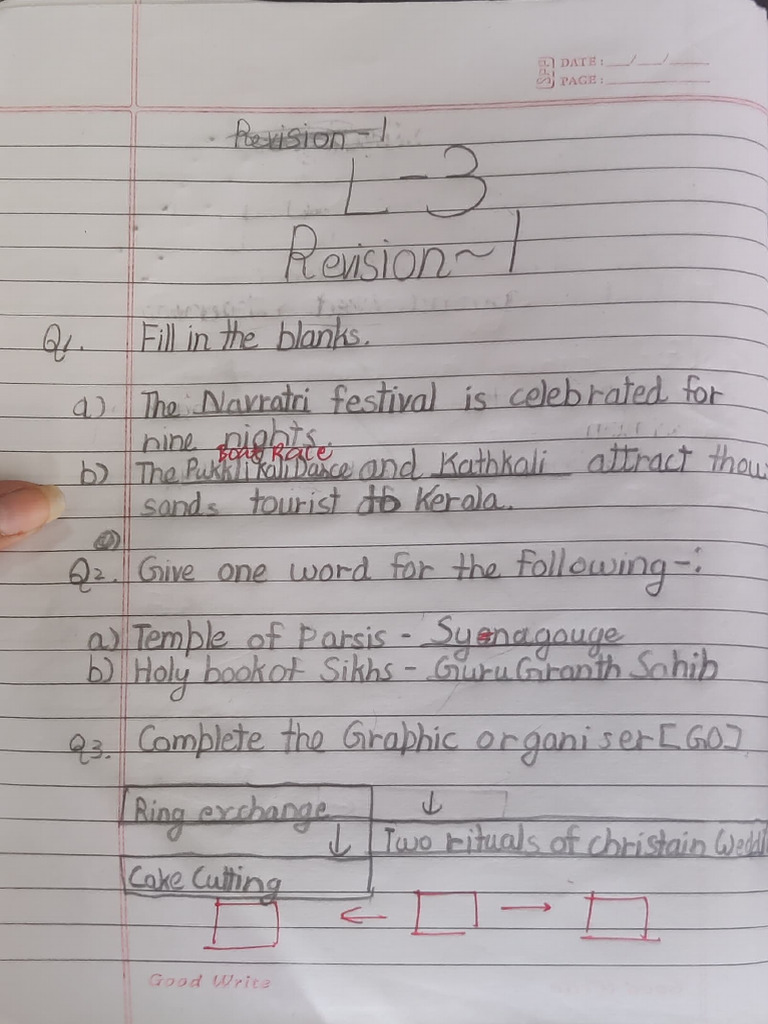 SPR DATE: __/__/__
PAGE: ______
Revision-1
L-3
Revision~1
Q1. Fill in the blanks.
a) The Navratri festival is celebrated for
nine nights.
Boat Race
b) The Pukklikali Dance and Kathkali attract thou
sands tourist to Kerala.
Q2. Give one word for the following-:
a) Temple of Parsis - Syenagouge
b) Holy book of Sikhs - Guru Granth Sahib
Q3. Complete the Graphic organiser [GO]
Ring exchange ↓
↓ Two rituals of christain Wedd
Cake Cutting
← →
Good Write